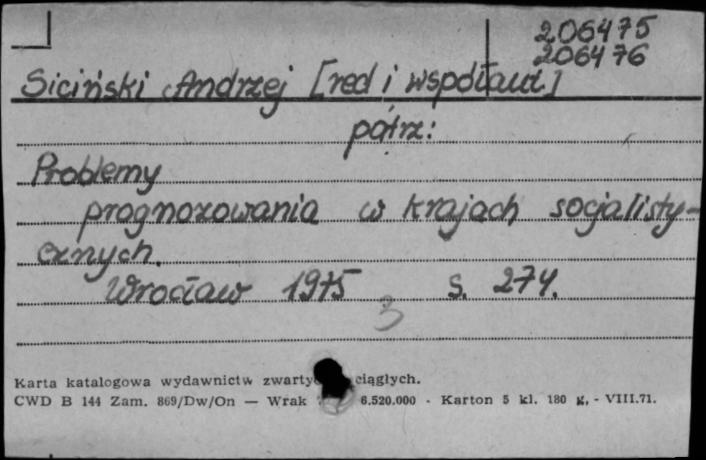 206475
206476
Siciński Andrzej [red i współaut.]
patrz:
Problemy
prognozowania w krajach socjalisty-
cznych.
Wrocław 1975 s. 274.
3
Karta katalogowa wydawnictw ciągłych.
CWD B 144 Zam. 869/Dw/On — Wrak 6.520.000 - Karton 5 kl. 180 g, - VIII.71.